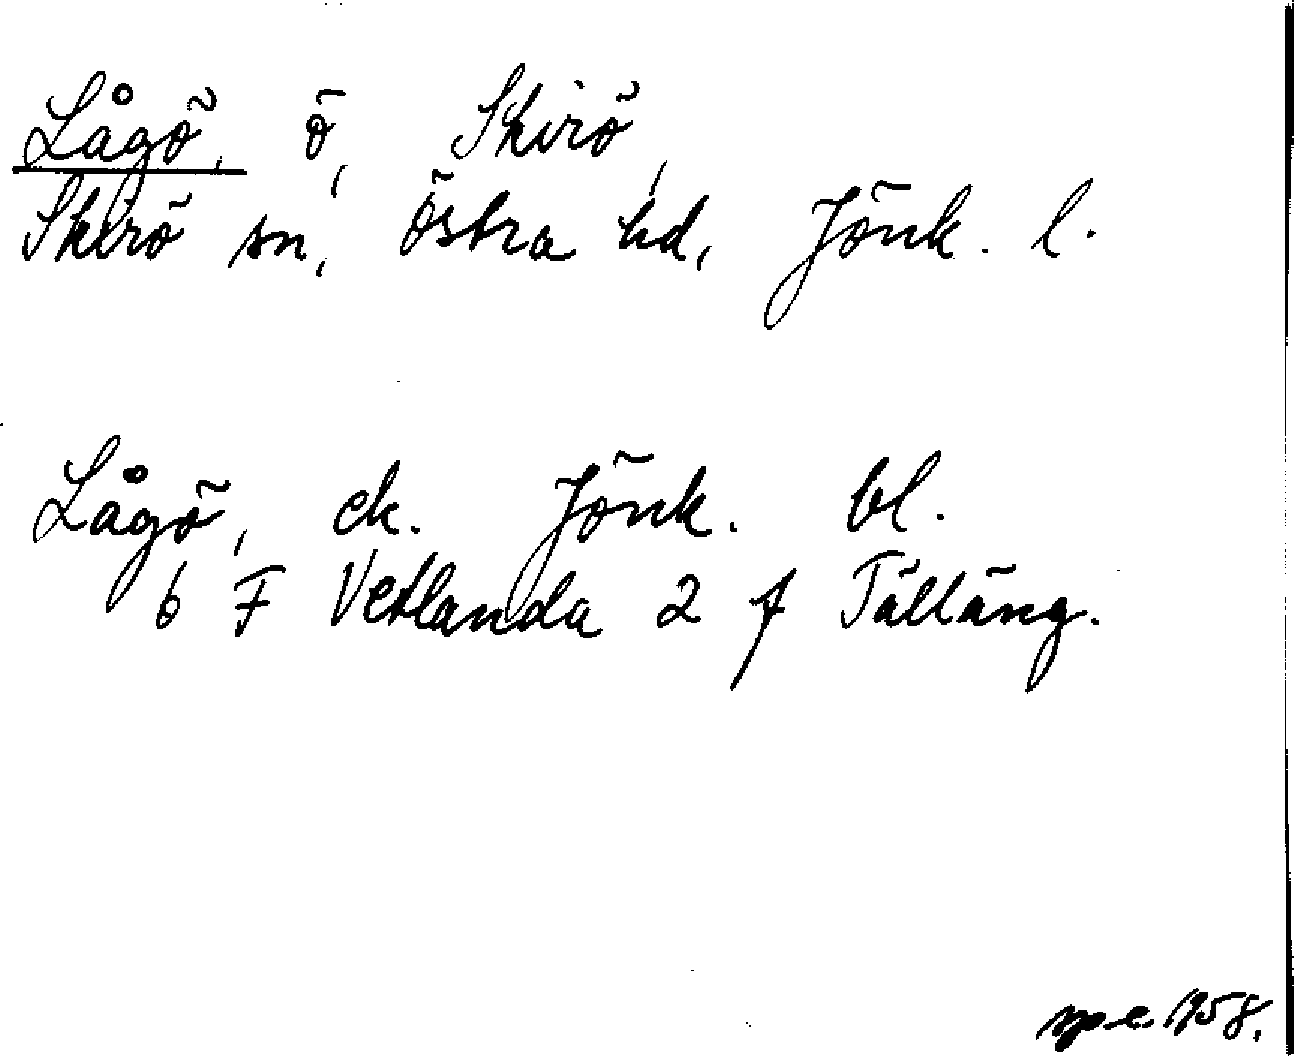 Lågö, ö, Skirö,
Skirö sn, Östra hd, Jönk. l.
Lågö, ek. Jönk. bl.
6 F Vetlanda 2 f Tälläng.
1958.